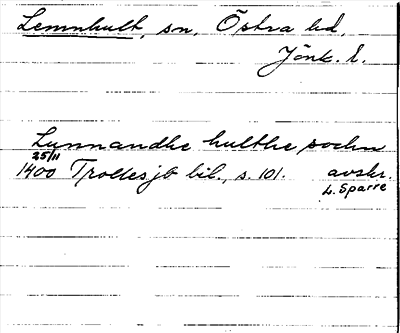 Lemnhult, sn, Östra hd,
Jönk. l.
Lunnandhe hulthe sochn
25/11
1400 Trollesjö bil., s. 101. avskr.
L. Sparre